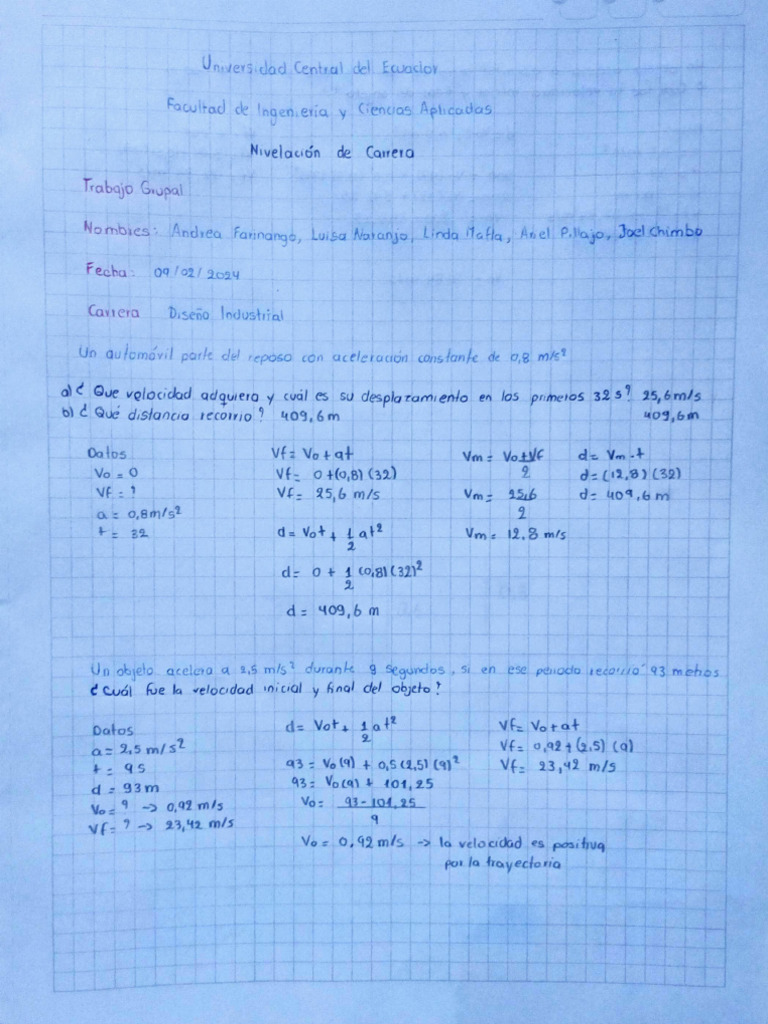 Universidad Central del Ecuador
Facultad de Ingeniería y Ciencias Aplicadas
Nivelación de Carrera
Trabajo Grupal
Nombres: Andrea Farinango, Luisa Naranjo, Linda Mafla, Ariel Pillajo, Joel Chimbo
Fecha: 09/02/2024
Carrera Diseño Industrial
Un automóvil parte del reposo con aceleración constante de 0,8 m/s²
a) ¿ Que velocidad adquiera y cuál es su desplazamiento en los primeros 32 s? 25,6 m/s
b) ¿ Qué distancia recorrio? 409,6 m 409,6 m
Datos
Vo = 0
Vf = ?
a = 0,8 m/s²
t = 32
Vf = Vo + at
Vf = 0 + (0,8) (32)
Vf = 25,6 m/s
d = Vot + 1/2 at²
d = 0 + 1/2 (0,8) (32)²
d = 409,6 m
Vm = Vo + Vf / 2
Vm = 25,6 / 2
Vm = 12,8 m/s
d = Vm . t
d = (12,8) (32)
d = 409,6 m
Un objeto acelera a 2,5 m/s² durante 9 segundos, si en ese periodo recorrió 93 metros
¿Cuál fue la velocidad inicial y final del objeto?
Datos
a = 2,5 m/s²
t = 9s
d = 93 m
Vo = ? -> 0,92 m/s
Vf = ? -> 23,42 m/s
d = Vot + 1/2 at²
93 = Vo (9) + 0,5 (2,5) (9)²
93 = Vo (9) + 101,25
Vo = 93 - 101,25 / 9
Vo = 0,92 m/s -> la velocidad es positiva
por la trayectoria
Vf = Vo + at
Vf = 0,92 + (2,5) (9)
Vf = 23,42 m/s